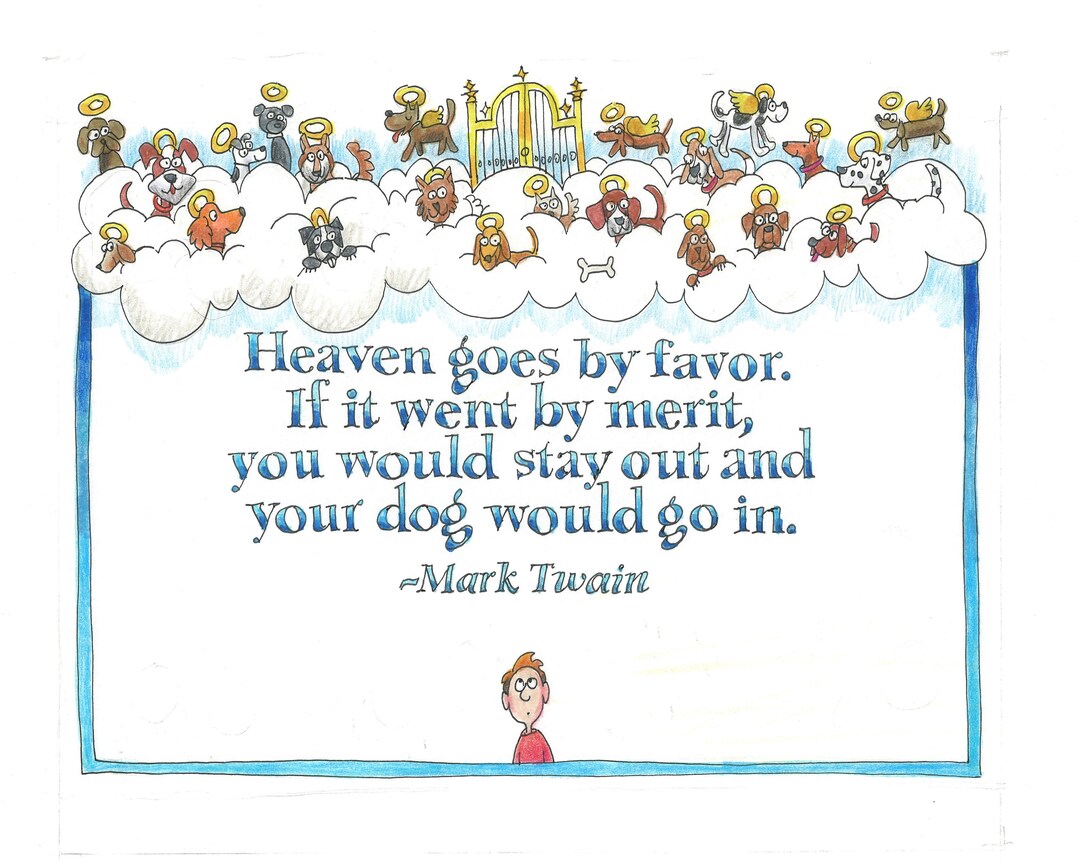 Heaven goes by favor.
If it went by merit,
you would stay out and
your dog would go in.
~Mark Twain